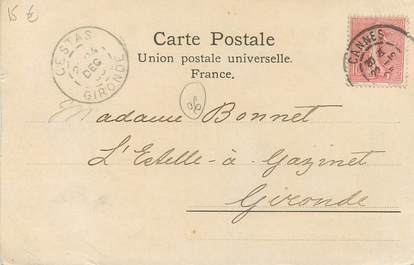 15 €
Carte Postale
Union postale universelle.
France.
CESTAS
24
DEC
GIRONDE
CANNES
Madame Bonnet
L'Estelle-à Gazinet
Gironde